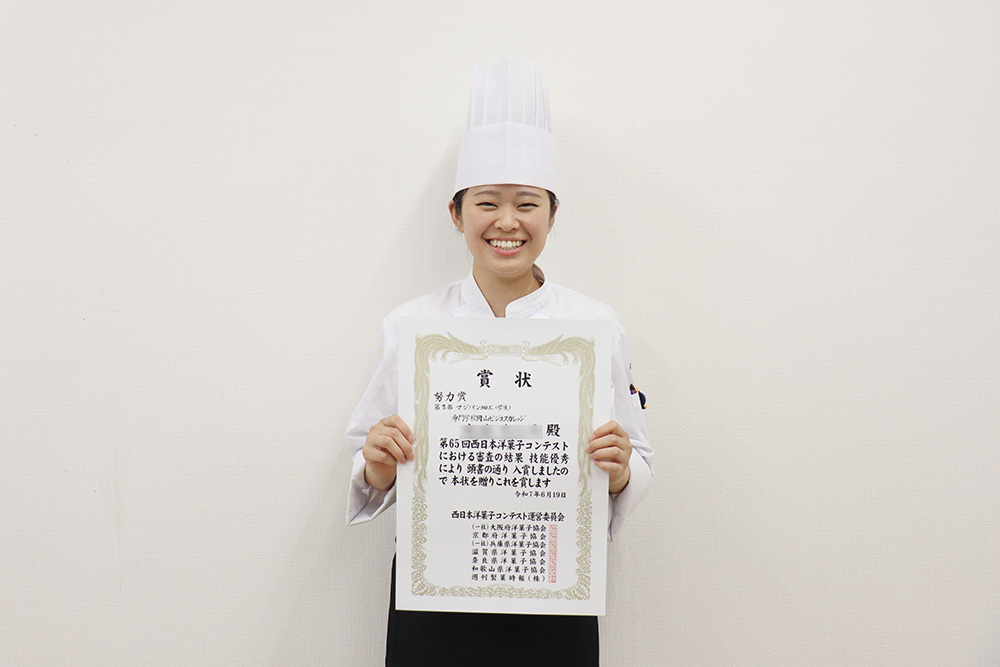 賞状
努力賞
第Ⅱ部 マジパン細工(学生)
専門学校岡山ビジネスカレッジ
殿
第65回西日本洋菓子コンテスト
における審査の結果 技能優秀
により 頭書の通り 入賞しましたの
で 本状を贈りこれを賞します
令和7年6月19日
西日本洋菓子コンテスト運営委員会
(一社)大阪府洋菓子協会
京都府洋菓子協会
(一社)兵庫県洋菓子協会
滋賀県洋菓子協会
奈良県洋菓子協会
和歌山県洋菓子協会
週刊製菓時報(株)